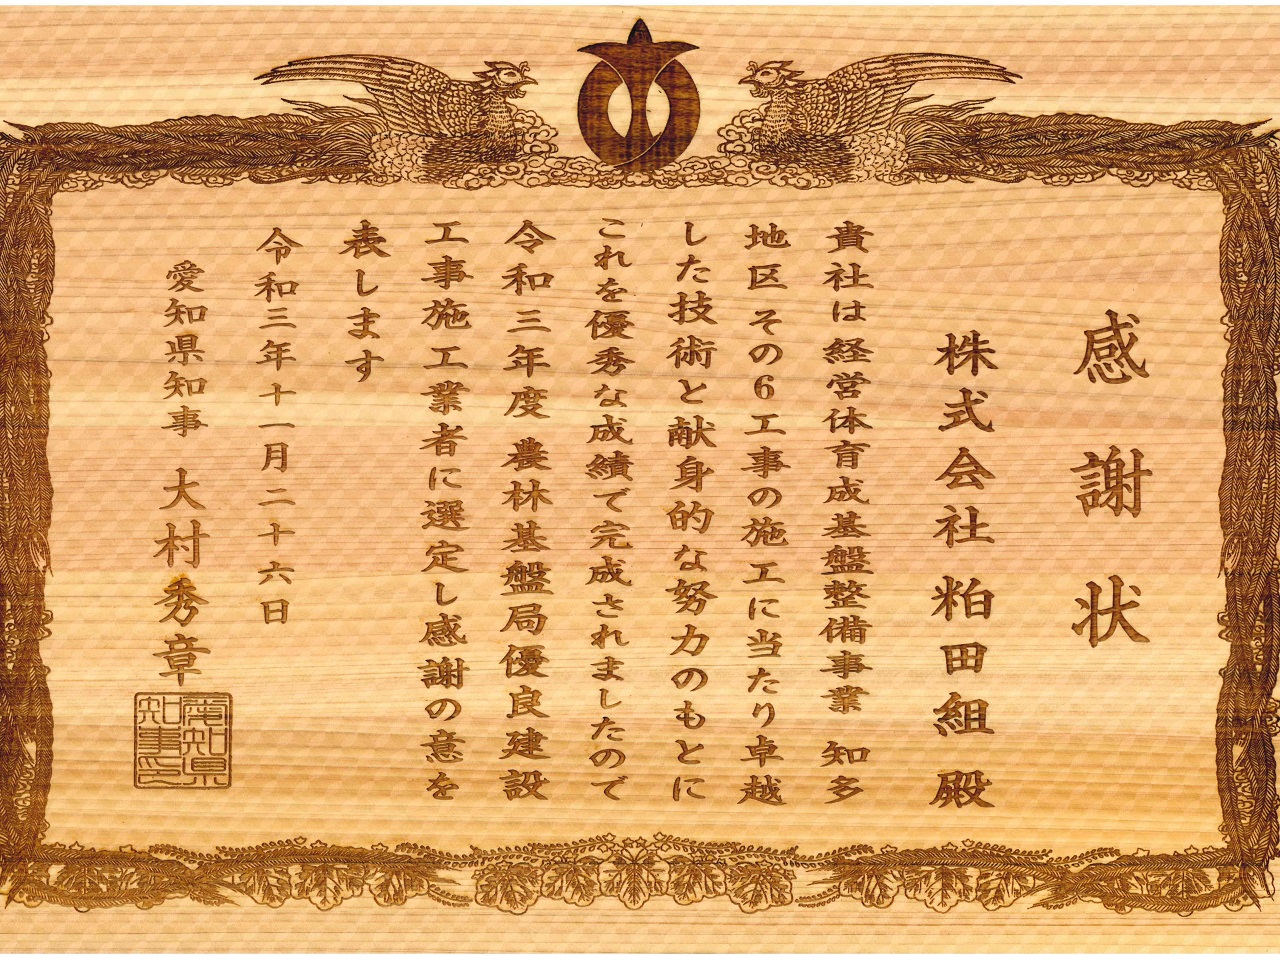 感謝状
株式会社 粕田組 殿
貴社は経営体育成基盤整備事業 知多
地区その6工事の施工に当たり卓越
した技術と献身的な努力のもとに
これを優秀な成績で完成されましたので
令和三年度 農林基盤局優良建設
工事施工業者に選定し感謝の意を
表します
令和三年十一月二十六日
愛知県知事 大村秀章
愛知県
知事印